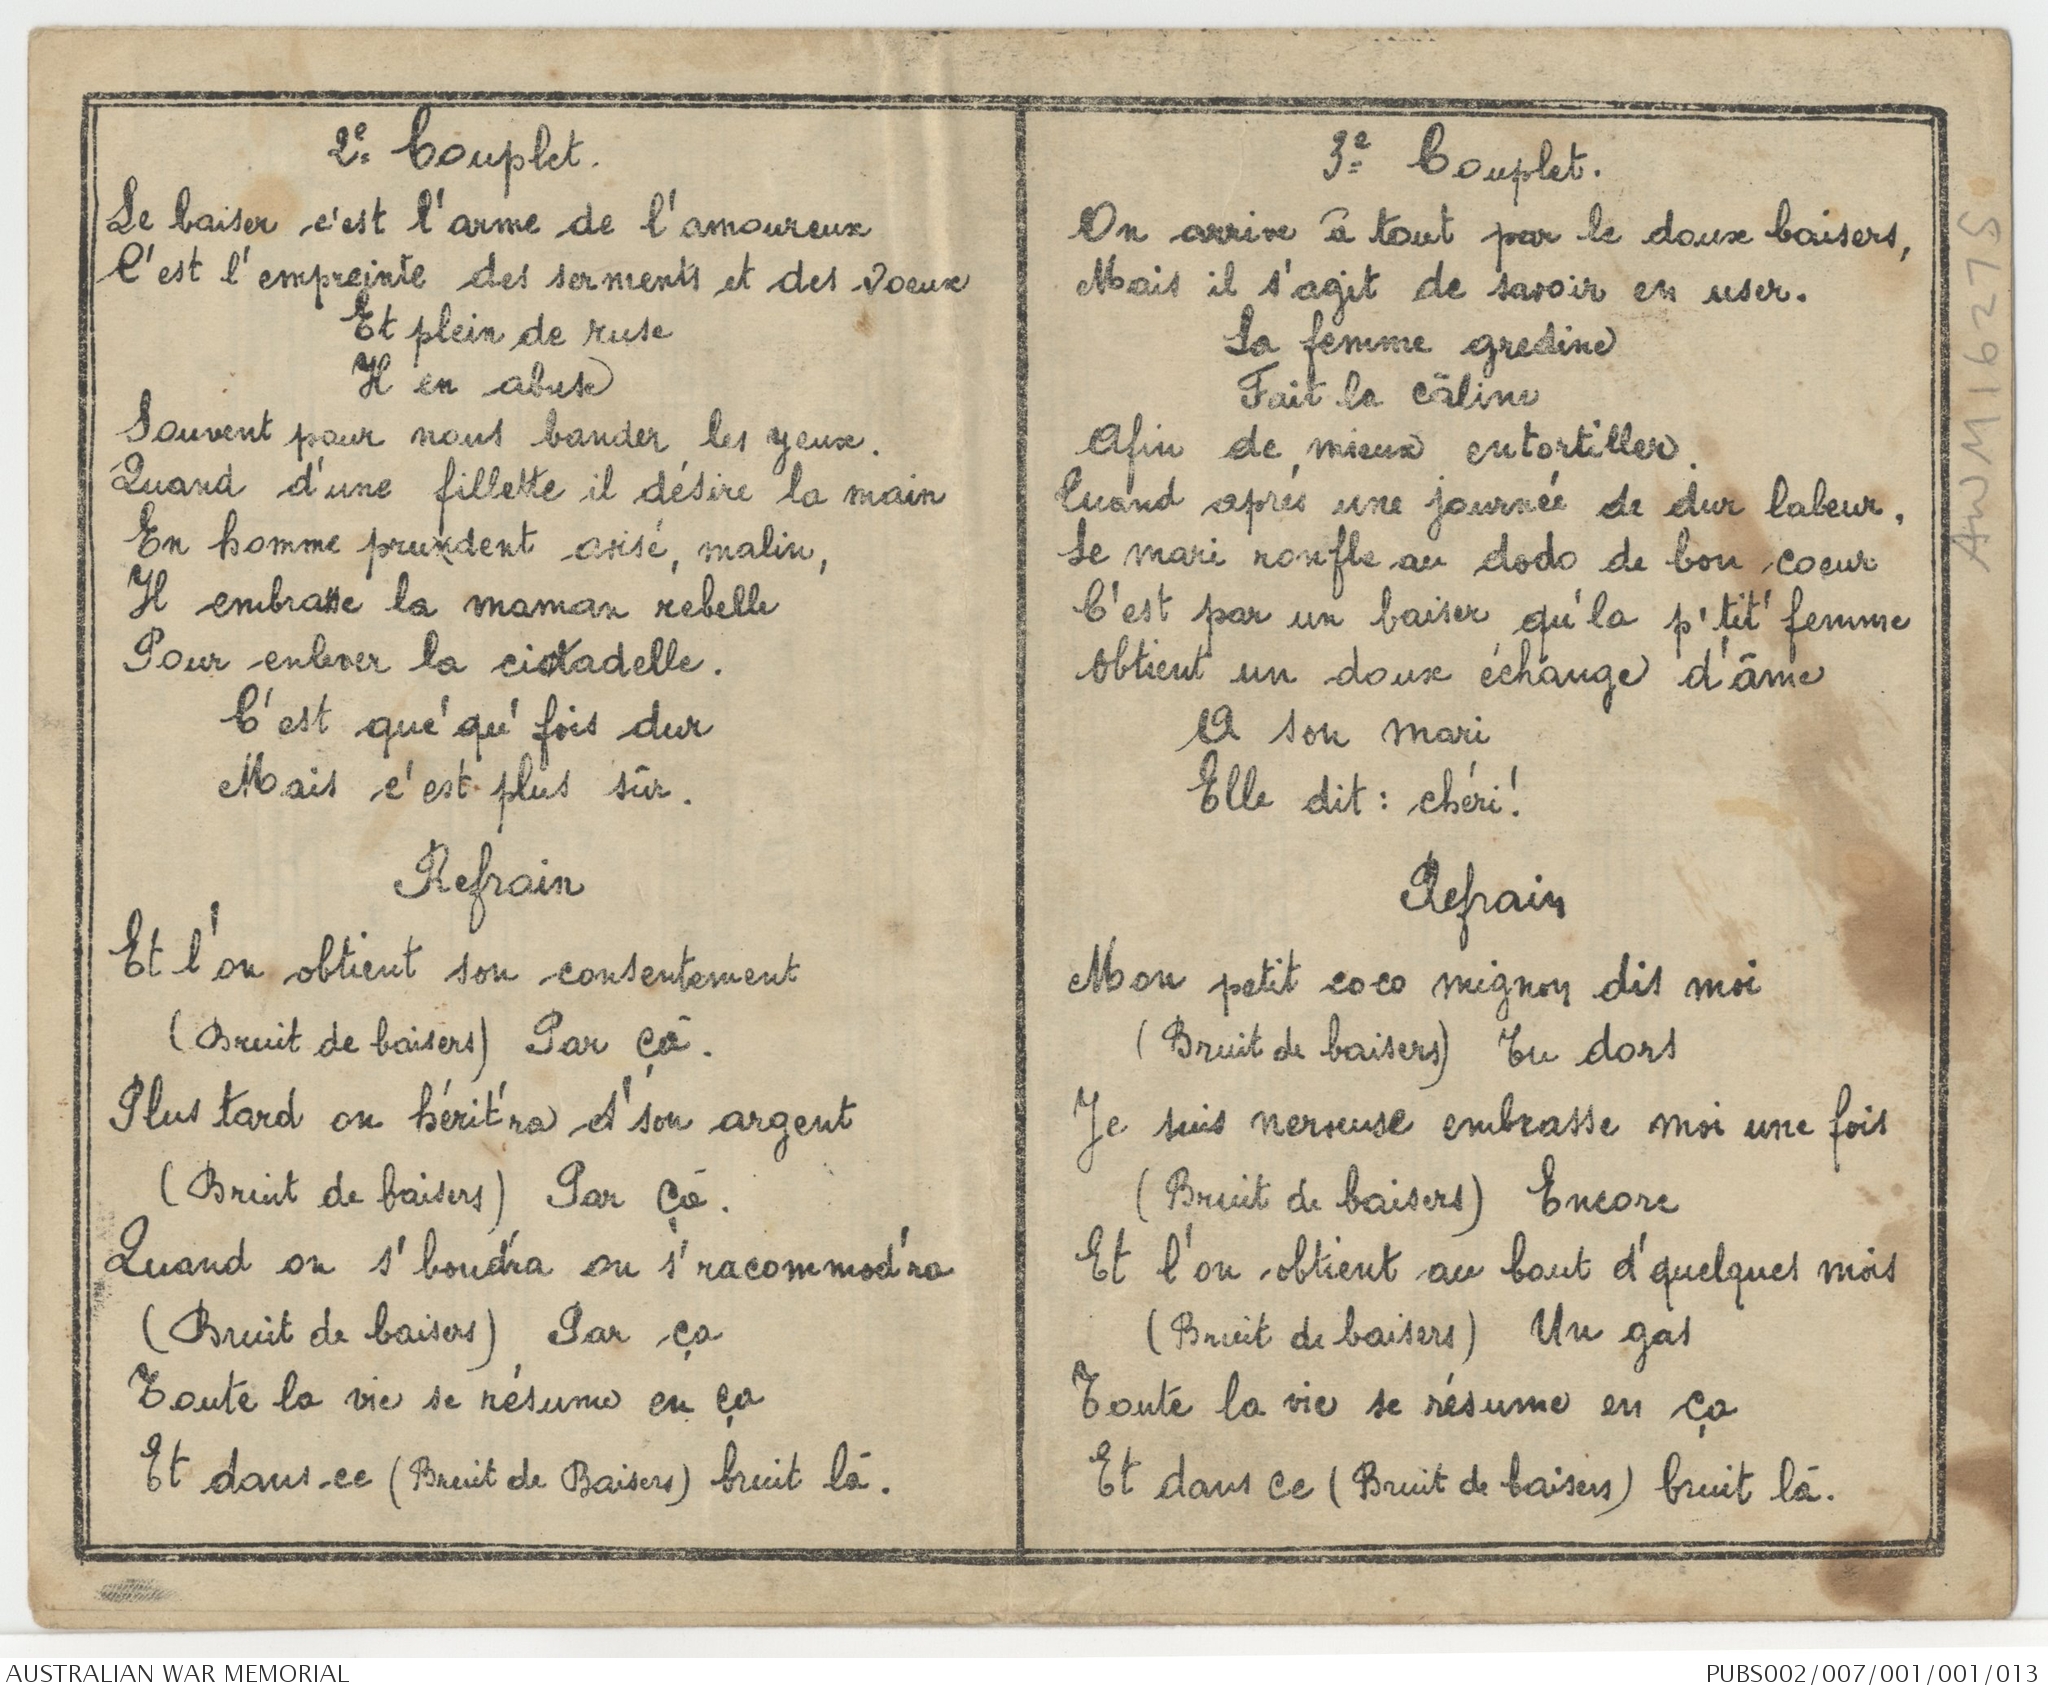 2e. Couplet.
Le baiser c'est l'arme de l'amoureux
C'est l'empreinte des serments et des voeux
Et plein de ruse
Il en abuse
Souvent pour nous bander les yeux.
Quand d'une fillette il désire la main
En homme prudent avisé, malin,
Il embrasse la maman rebelle
Pour enlever la citadelle.
C'est que'qu' fois dur
Mais c'est plus sûr.
Refrain
Et l'on obtient son consentement
(Bruit de baisers) Par çà.
Plus tard on hérit'ra d'son argent
(Bruit de baisers) Par çà.
Quand on s'boud'ra on s'racommod'ra
(Bruit de baisers) Par ça
Toute la vie se résume en ça
Et dans ce (Bruit de Baisers) bruit là.
3e Couplet.
On arrive à tout par le doux baisers,
Mais il s'agit de savoir en user.
La femme gredine
Fait la câline
Afin de mieux entortiller.
Quand après une journée de dur labeur,
Le mari ronfle au dodo de bon coeur
C'est par un baiser qu'la p'tit' femme
Obtient un doux échange d'âme
A son mari
Elle dit : chéri!
Refrain
Mon petit coco mignon dis moi
(Bruit de baisers) Tu dors
Je suis nerveuse embrasse moi une fois
(Bruit de baisers) Encore
Et l'on obtient au bout d'quelques mois
(Bruit de baisers) Un gas
Toute la vie se résume en ça
Et dans ce (Bruit de baisers) bruit là.
AWM16275
AUSTRALIAN WAR MEMORIAL
PUBS002/007/001/001/013